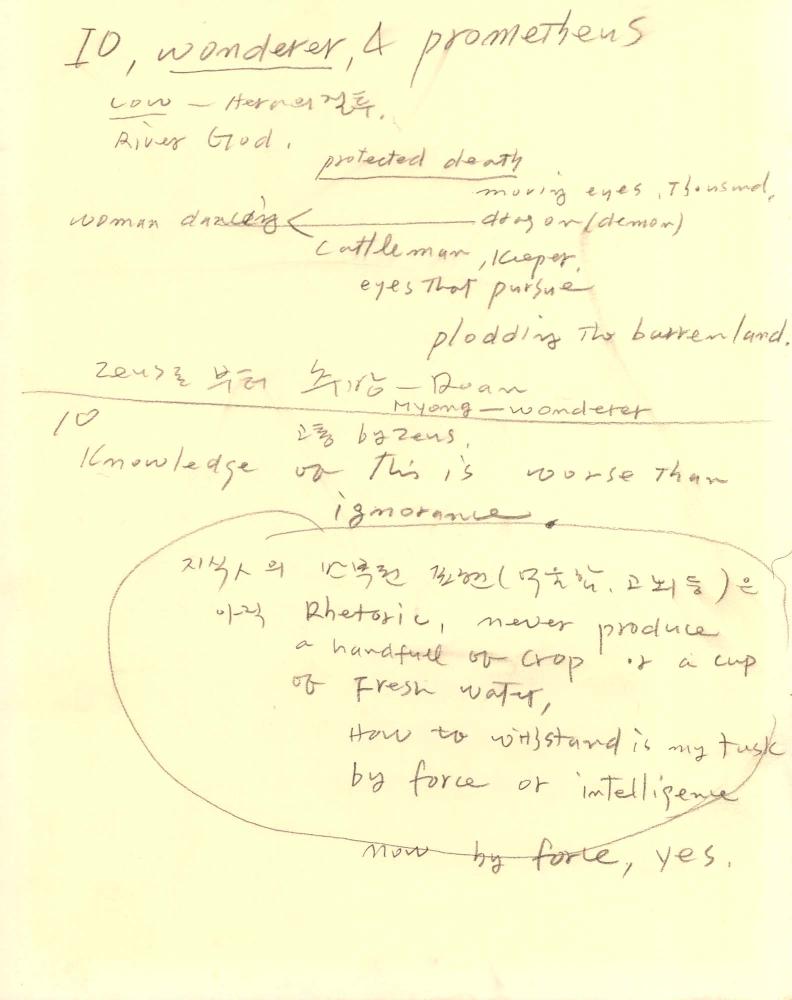 IO, wonderer, & prometheus
cow — Hermes 질투.
River God.
protected death
moving eyes, Thousand,
woman dancing dragon (demon)
Cattleman, Keeper,
eyes that pursue
plodding the barren land.
Zeus로 부터
Myong — wonderer
IO
고통 by Zeus,
Knowledge of this is worse than
ignorance.
지식人의 표현( 고뇌등)은
아직 Rhetoric, never produce
a handfull of crop or a cup
of Fresh water,
How to withstand is my task
by force or intelligence
now by force, yes.